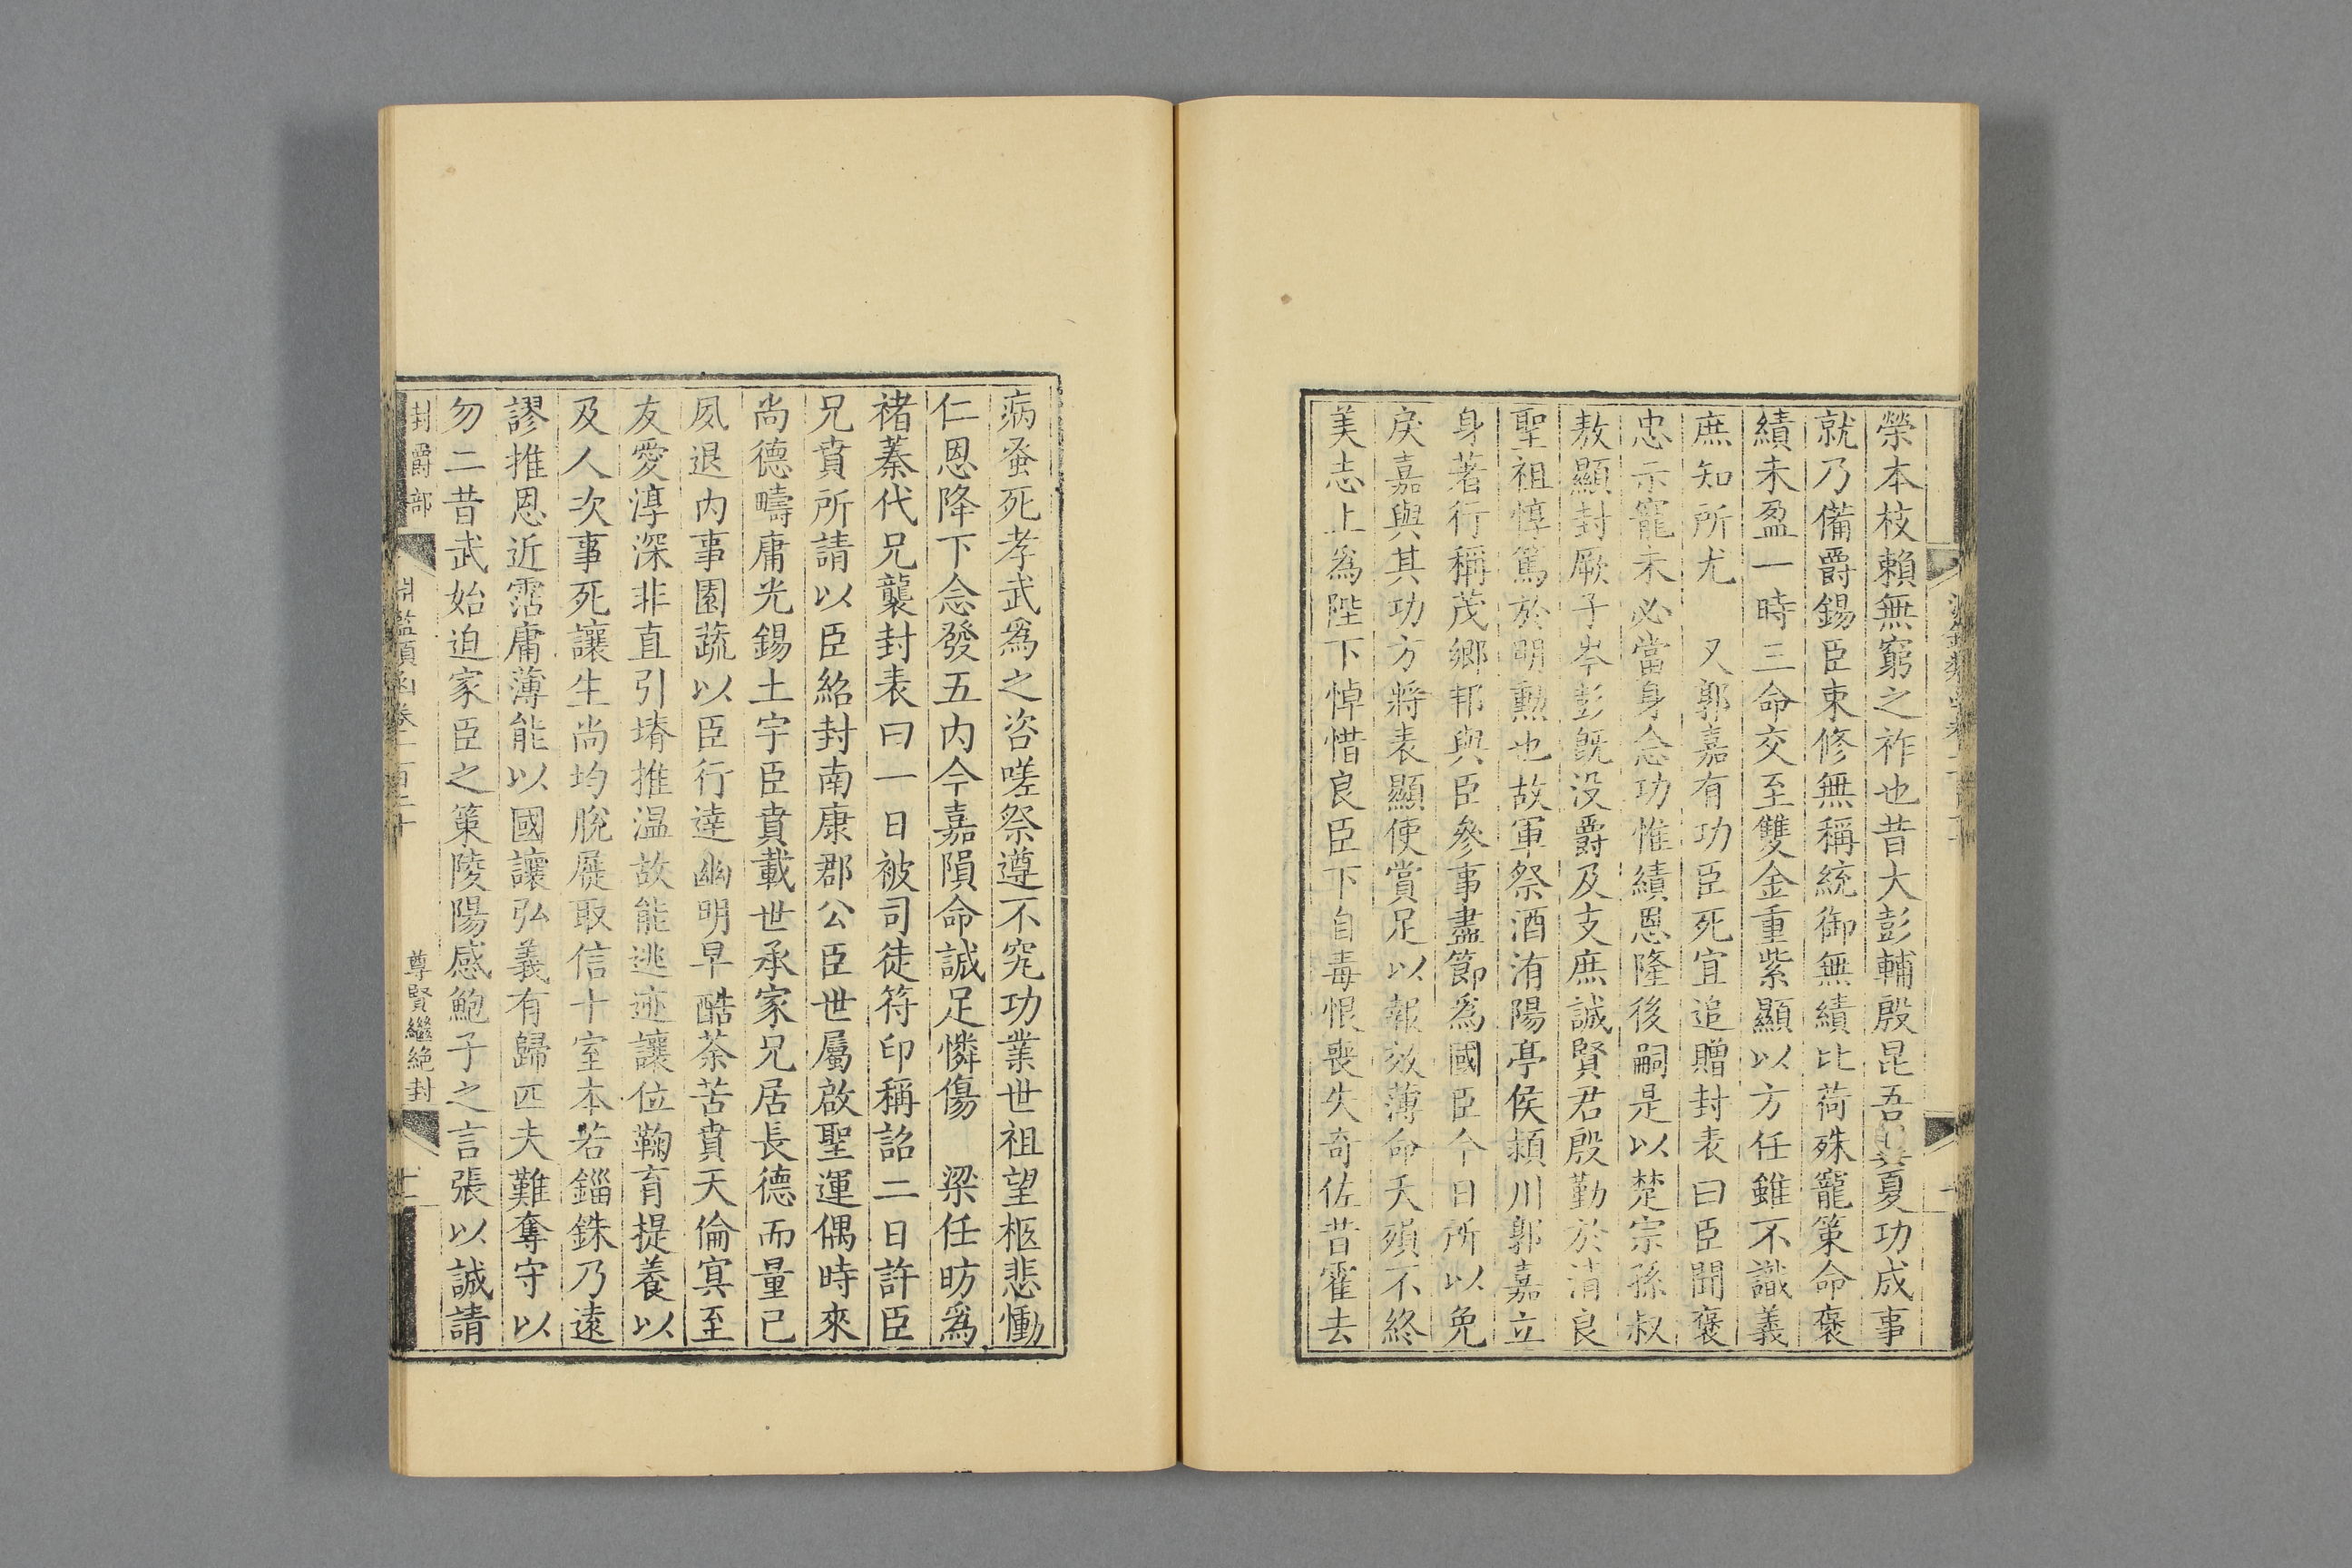 榮本枝賴無窮之祚也昔大彭輔殷昆吾夏功成事
就乃備爵錫臣束修無稱統御無績比荷殊寵策命褒
績未盈一時三命交至雙金重紫顯以方任雖不識義
庶知所尤　又郭嘉有功臣死宜追贈封表曰臣聞褒
忠示寵未必當身念功惟績恩隆後嗣是以楚宗孫叔
敖顯封厥子岑彭旣没爵及支庶誠賢君殷勤於清良
聖祖惇篤於明勲也故軍祭酒洧陽亭侯潁川郭嘉立
身著行稱茂鄉邦與臣參事盡節爲國臣今日所以免
戾嘉與其功方將表顯使賞足以報效薄命夭殞不終
美志上爲陛下悼惜良臣下自毒恨喪失奇佐昔霍去
病蚤死孝武爲之咨嗟祭遵不究功業世祖望柩悲慟
仁恩降下念發五内今嘉隕命誠足憐傷　梁任昉爲
褚蓁代兄襲封表曰一日被司徒符印稱詔二日許臣
兄賁所請以臣紹封南康郡公臣世屬啟聖運偶時來
尚德疇庸光錫土宇臣賁載世承家兄居長德而量己
夙退内事園蔬以臣行達幽明早酷荼苦賁天倫寘至
友愛淳深非直引堉推温故能逃迹讓位鞠育提養以
及人次事死讓生尚均脫屣取信十室本若錙銖乃遠
謬推恩近霑庸薄能以國讓弘義有歸匹夫難奪守以
勿二昔武始迫家臣之策陵陽感鮑子之言張以誠請
封爵部
淵鑑類函卷一百二十
尊賢繼絶封
十一